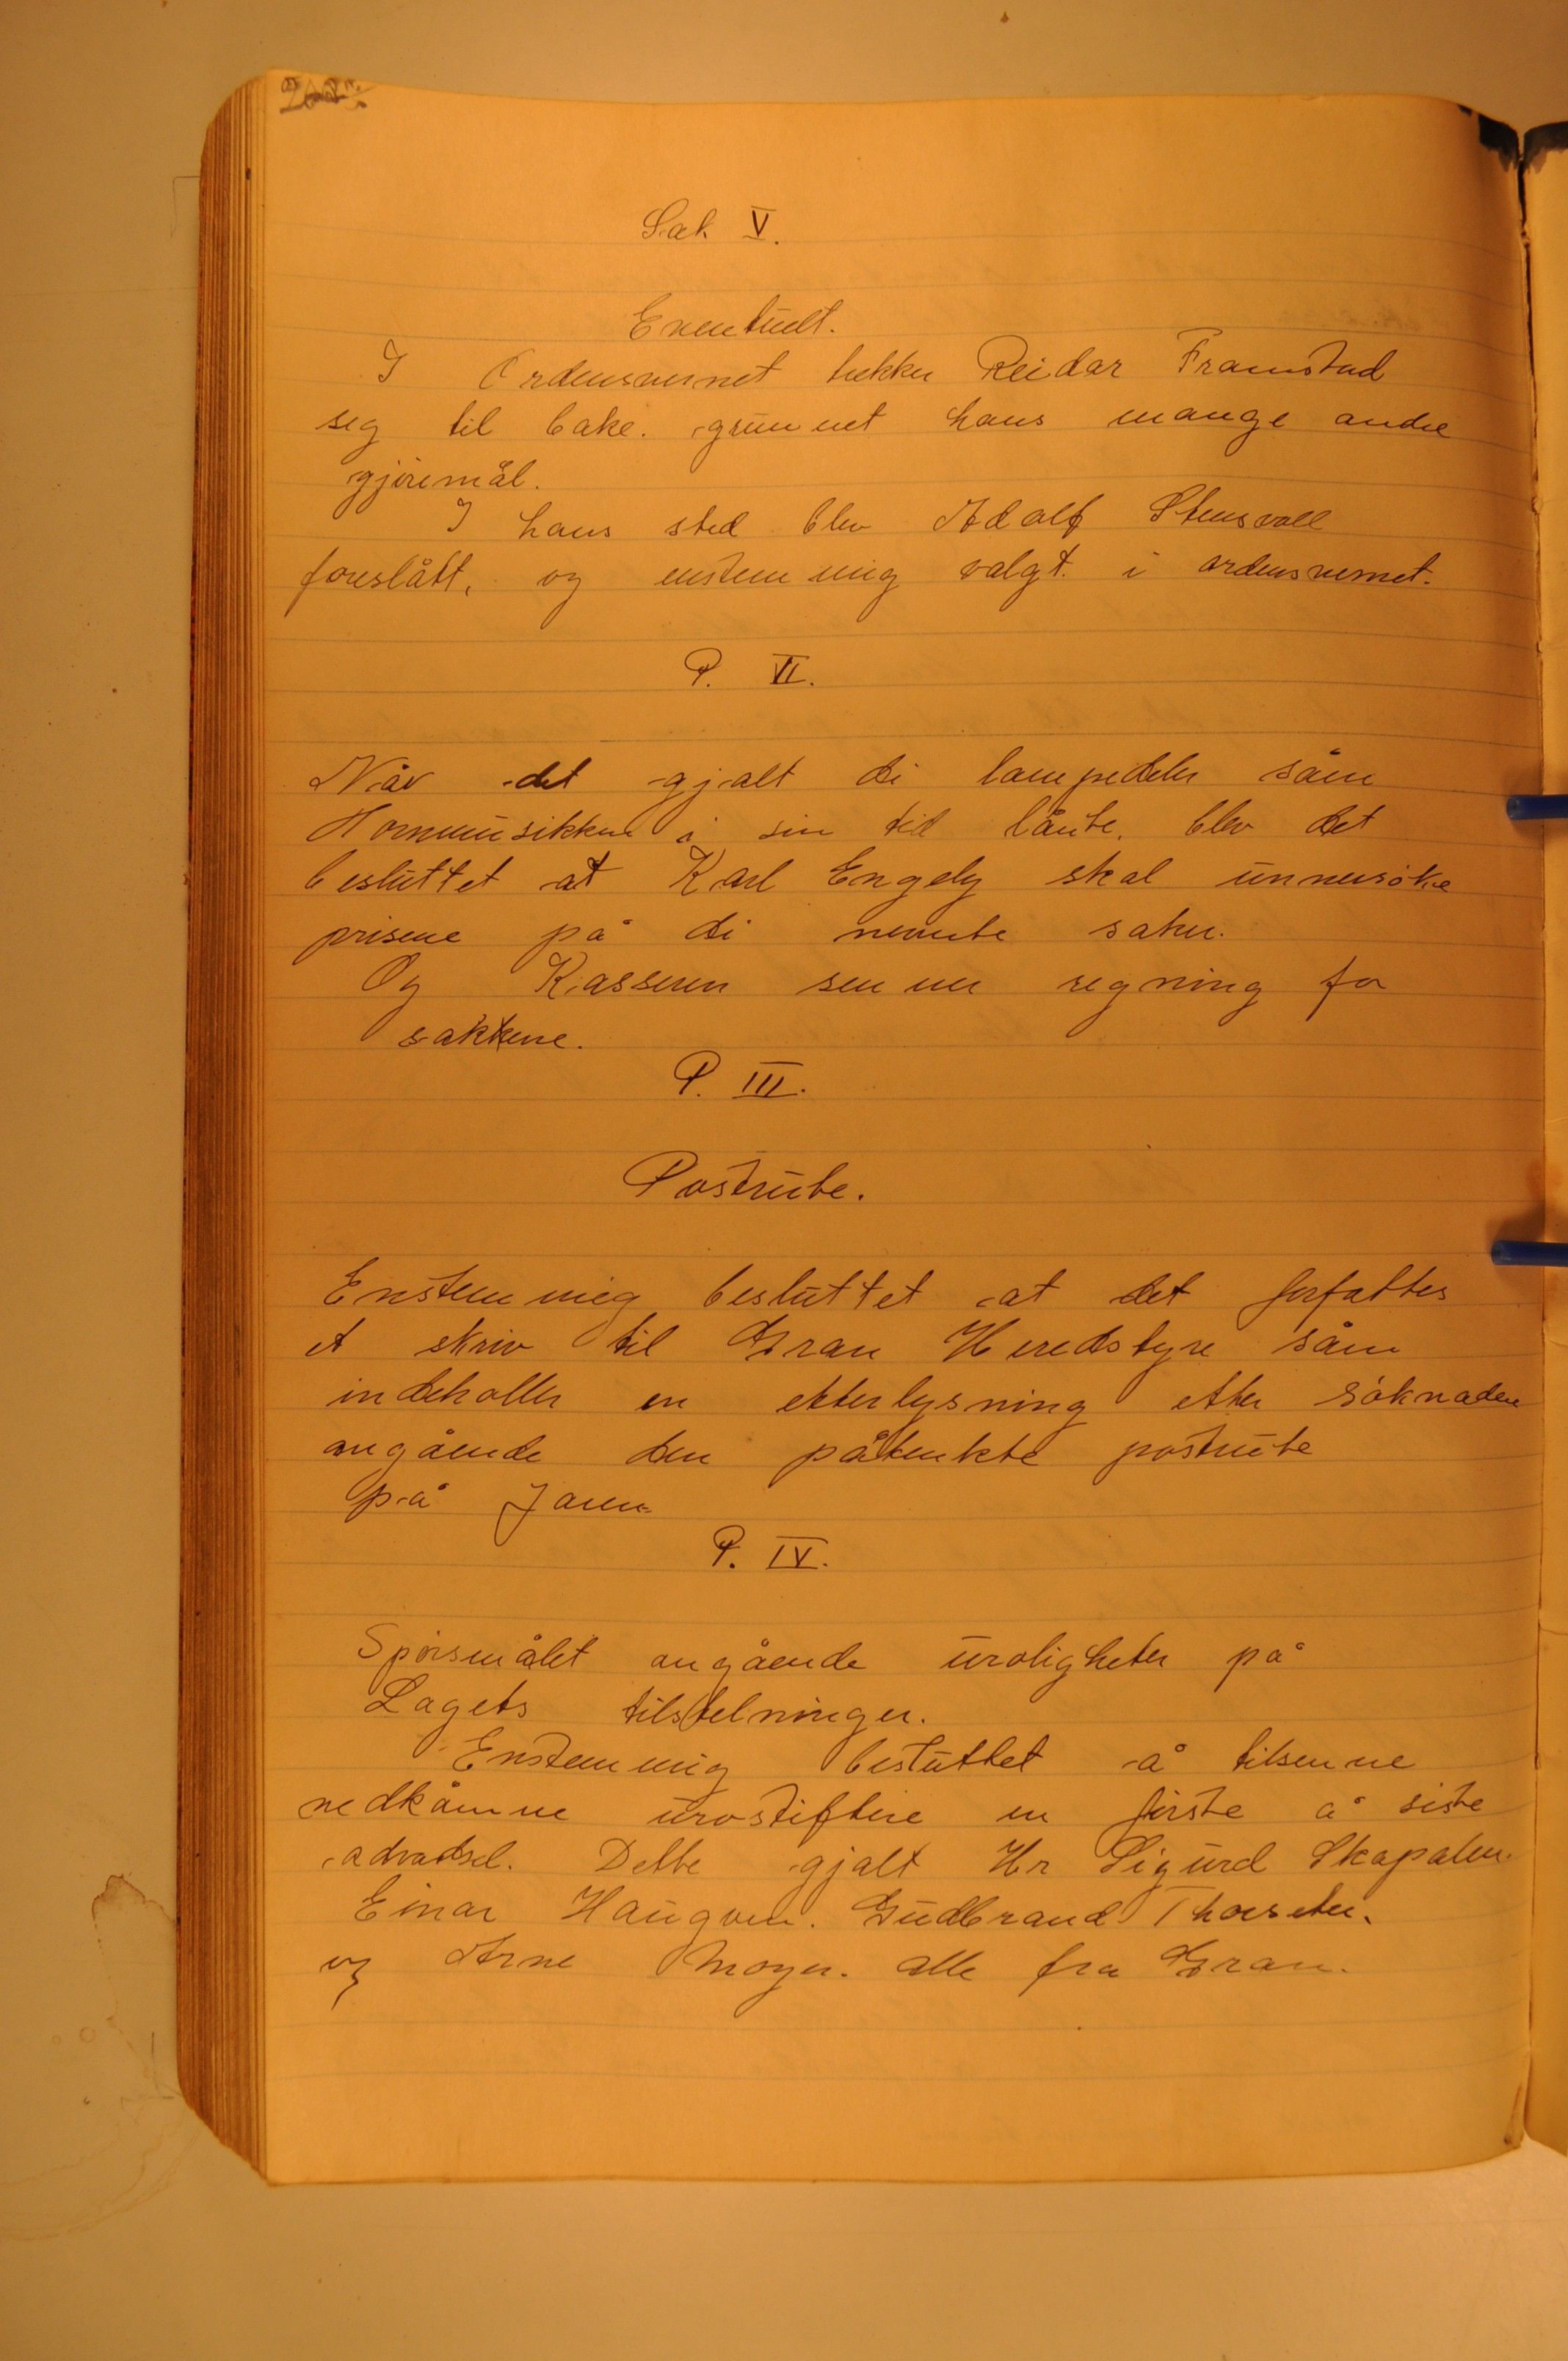 Sak V.
Eventuelt.
I Ordensvernet trekker Reidar Framstad
seg til bake. grunnet hans mange andre
gjøremål.
I hans sted blev Adolf Stensvoll
foreslått, og enstemmig valgt i ordensvernet.
P. VI.
Når det gjalt di lampedeler såm
Hornmusikken i sin tid lånte. blev det
besluttet at Karl Engely skal unnersøke
prisene på di nevnte saker.
Og Kasseren senner regning for
sakkene.
P. III.
Postrute.
Enstemmig besluttet at det forfattes
et skriv til Gran Heredstyre såm
indeholler en etterlysning etter søknaden
angående den påtenkte postrute
på
P. IV.
Spørsmålet angående uroligheter på
Lagets tilstelninger.
Enstemmig besluttet å tilsenne
nedkåmne urostiftere en første å siste
advadsel. Dette gjalt Hr Sigurd Skapalen.
Einar Haugven. Gudbrand Thorseter.
og Arne Moger. alle fra Gran.